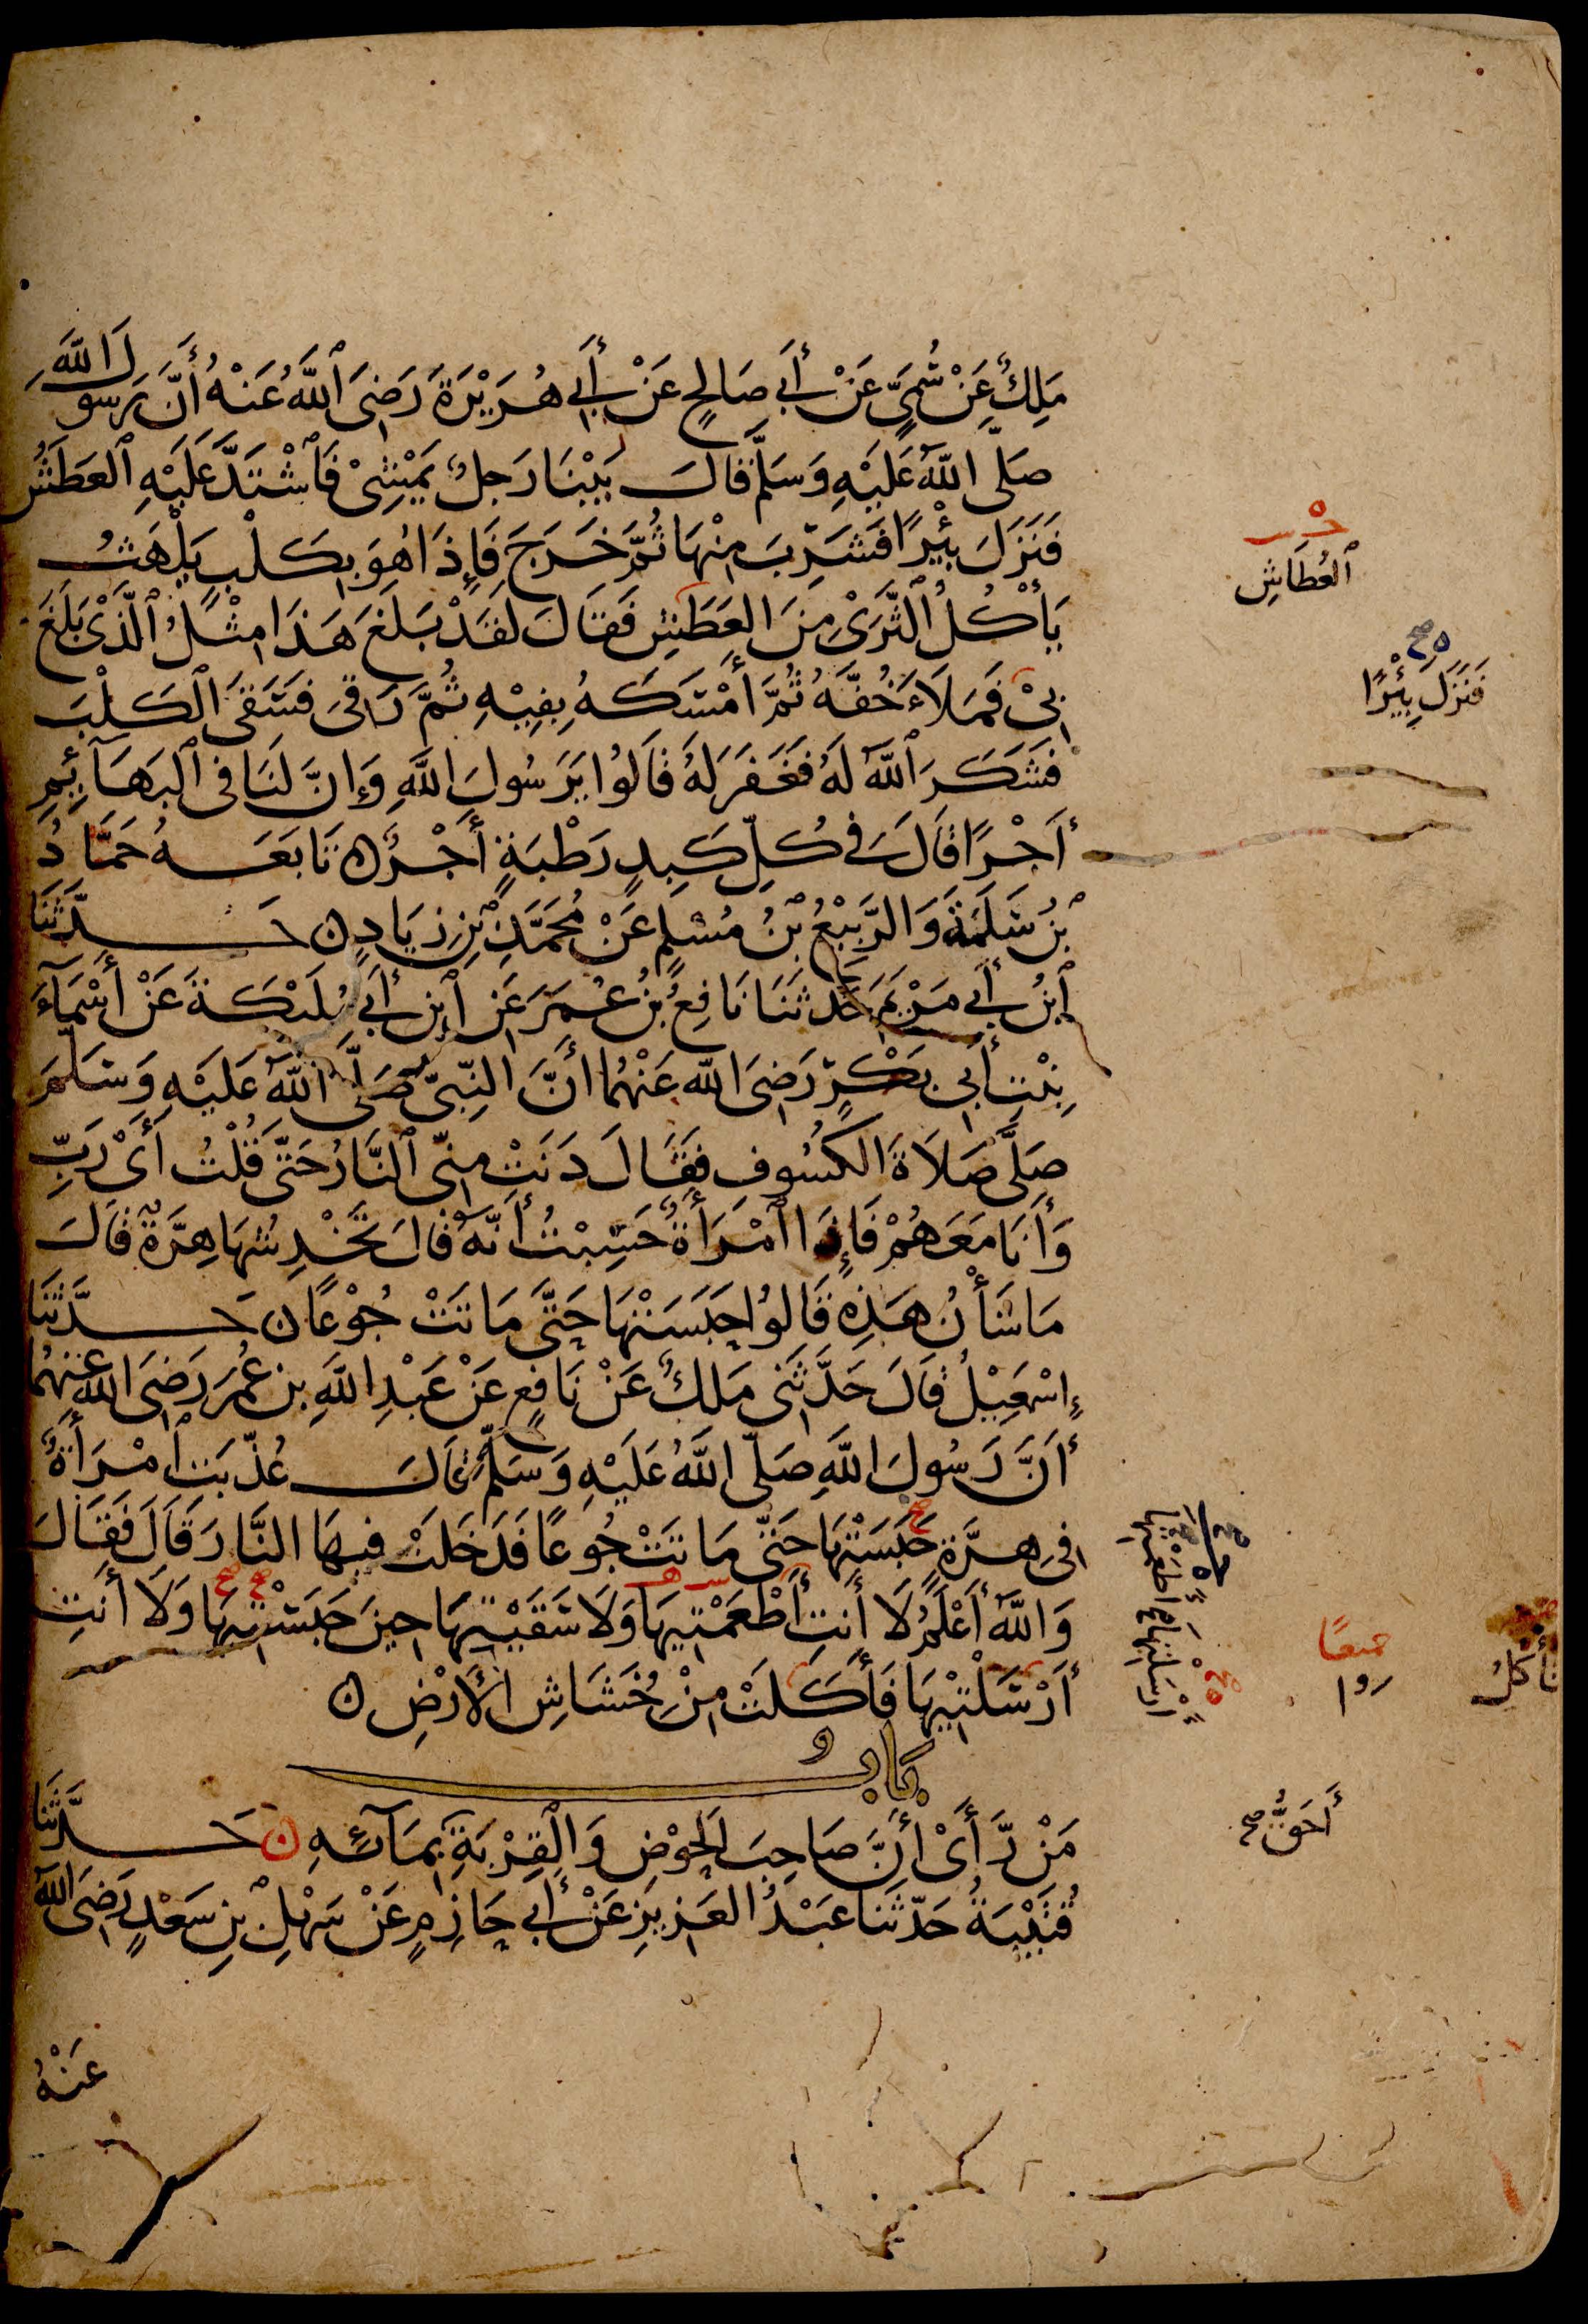 مَلِكٌ عَنْ سُمَيٍّ عَنْ أَبِي صَالِحٍ عَنْ أَبِي هُرَيْرَةَ رَضِيَ ٱللَّهُ عَنْهُ أَنَّ رَسُولَ اللَّهِ
صَلَّى اللَّهُ عَلَيْهِ وَسَلَّمَ قَالَ بَيْنَا رَجُلٌ يَمْشِيْ فَٱشْتَدَّ عَلَيْهِ ٱلعَطَشُ
فَنَزَلَ بِئْرًا فَشَرِبَ مِنْهَا ثُمَّ خَرَجَ فَإِذَا هُوَ بِكَلْبٍ يَلْهَثُ
يَأْكُلُ ٱلثَّرَىْ مِنَ العَطَشِ فَقَالَ لَقَدْ بَلَغَ هَذَا مِثْلُ ٱلَّذْى بَلَغَ
بِيْ فَمَلَاءَ خُفَّهُ ثُمَّ أَمْسَكَهُ بِفِيْهِ ثُمَّ رَقِيَ فَسَقَى ٱلكَلْبَ
فَشَكَرَ ٱللَّهُ لَهُ فَغَفَرَ لَهُ قَالُوا يَرَسُولَ اللَّهِ وَإِنَّ لَنَا فِى ٱلبَهَآئِمِ
أَجْرًا قَالَ فِي كُلِّ كَبِدٍ رَطْبَةٍ أَجْرٌ ن تَابَعَهُ حَمَّادُ
بْنُ سَلَمَةَ وَالرَّبِيْعُ بْنُ مُسْلِمٍ عَنْ مُحَمَّدِ بْنِ زِيَادٍ ن حَدَّثَنَا
ٱبْنُ أَبِي مَرْيَمَ حَدَّثَنَا نَافِعُ بْنُ عُمَرَ عَنِ ٱبْنِ أَبِي مُلَيْكَةَ عَنْ أَسْمَآءَ
بِنْتِ أَبِي بَكْرٍ رَضِيَ اللَّه عَنْهُمَا أَنَّ النَّبِيَّ صَلَّى ٱللَّهُ عَلَيْهِ وَسَلَّمَ
صَلَّى صَلَاةَ الكُسُوفِ فَقَالَ دَنَتْ مِنِّي ٱلنَّارُ حَتَّى قُلْتُ أَىْ رَبِّ
وَأَنَا مَعَهُمْ فَإِذَا ٱمْرَأَةٌ حَسِبْتُ أَنَّهُ قَالَ تَخْدِشُهَا هِرَّةٌ قَالَ
مَا شَأْنُ هَذِهِ قَالُوا حَبَسَتْهَا حَتَّى مَاتَتْ جُوْعًا ن حَدَّثَنَا
إِسْمَعِيْلُ قَالَ حَدَّثَنِي مَلِكٌ عَنْ نَافِعٍ عَنْ عَبْدِ اللَّهِ بنِ عُمَرَ رَضِيَ اللَّهُ عَنْهُمَا
أَنَّ رَسُولَ اللَّهِ صَلَّى اللَّهُ عَلَيْهِ وَسَلَّمَ قَالَ عُذِّبَتِ ٱمْرَأَةٌ
فِي هِرَّةٍ حَبَسَتْهَا حَتَّى مَاتَتْ جُوعًا فَدَخَلَتْ فِيهَا النَّارَ قَالَ فَقَالَ
وَاللَّهُ أَعْلَمُ لَا أَنتِ أَطْعَمْتِيهَا وَلَا سَقَيْتِيهَا حِينَ حَبَسْتِيهَا وَلَا أَنتِ
أَرْسَلْتِيْهَا فَأَكَلَتْ مِنْ خُشَاشِ الأَرْضِ ن
بَابُ
مَنْ رَّأَىْ أَنَّ صَاحِبَ الحَوْضِ وَالْقِرْبَةِ بِمَآئِهِ ن حَدَّثَنَا
قُتَيْبَةُ حَدَّثَنَا عَبْدُ العَزِيزِ عَنْ أَبِي حَازِمٍ عَنْ سَهْلِ بْنِ سَعْدٍ رَضِيَ اللَّهُ
عَنْهُ
ٱلعُطَاشِ
ه صح
فَنَزَلَ بِئْرًا
أَطْعَمْتِهَا
أَرْسَلْتِهَا
تأكلُ
أَحَقُّ صح